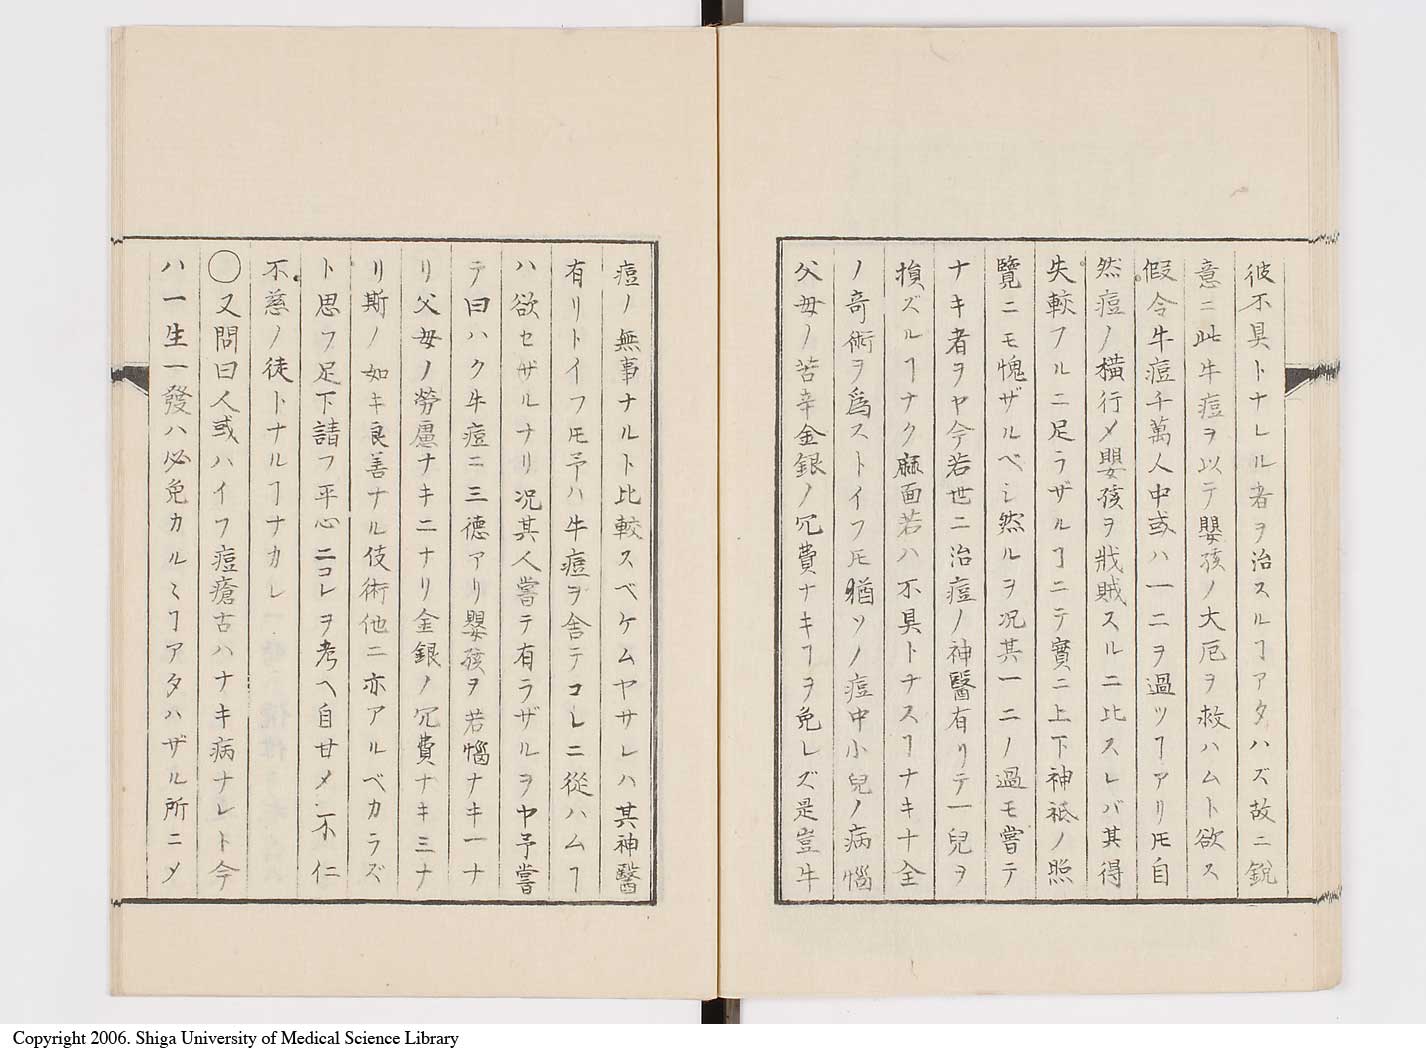 彼不具トナレル者ヲ治スルヿアタハズ故ニ鋭
意ニ此牛痘ヲ以テ嬰孩ノ大厄ヲ救ハムト欲ス
假令牛痘千萬人中或ハ一二ヲ過ツヿアリ𪜈自
然痘ノ横行〆嬰孩ヲ戕賊スルニ比スレバ其得
失較フルニ足ラザルヿニテ實ニ上下神祇ノ照
覽ニモ愧ザルベシ然ルヲ况其一二ノ過モ嘗テ
ナキ者ヲヤ今若世ニ治痘ノ神醫有リテ一兒ヲ
損ズルヿナク麻面若ハ不具トナスヿナキ十全
ノ奇術ヲ爲ストイフ𪜈猶ソノ痘中小兒ノ病惱
父母ノ苦辛金銀ノ冗費ナキヿヲ免レズ是豈牛
痘ノ無事ナルト比較スベケムヤサレハ其神醫
有リトイフ𪜈予ハ牛痘ヲ舍テコレニ從ハムヿ
ハ欲セザルナリ况其人嘗テ有ラザルヲヤ予嘗
テ曰ハク牛痘ニ三德アリ嬰孩ヲ若惱ナキ一ナ
リ父母ノ勞慮ナキ二ナリ金銀ノ冗費ナキ三ナ
リ斯ノ如キ良善ナル伎術他ニ亦アルベカラズ
ト思フ足下請フ平心ニコレヲ考ヘ自甘〆不仁
不慈ノ徒トナルヿナカレ
〇又問曰人或ハイフ痘瘡古ハナキ病ナレト今
ハ一生一發ハ必免カルミヿアタハザル所ニ〆
Copyright 2006. Shiga University of Medical Science Library